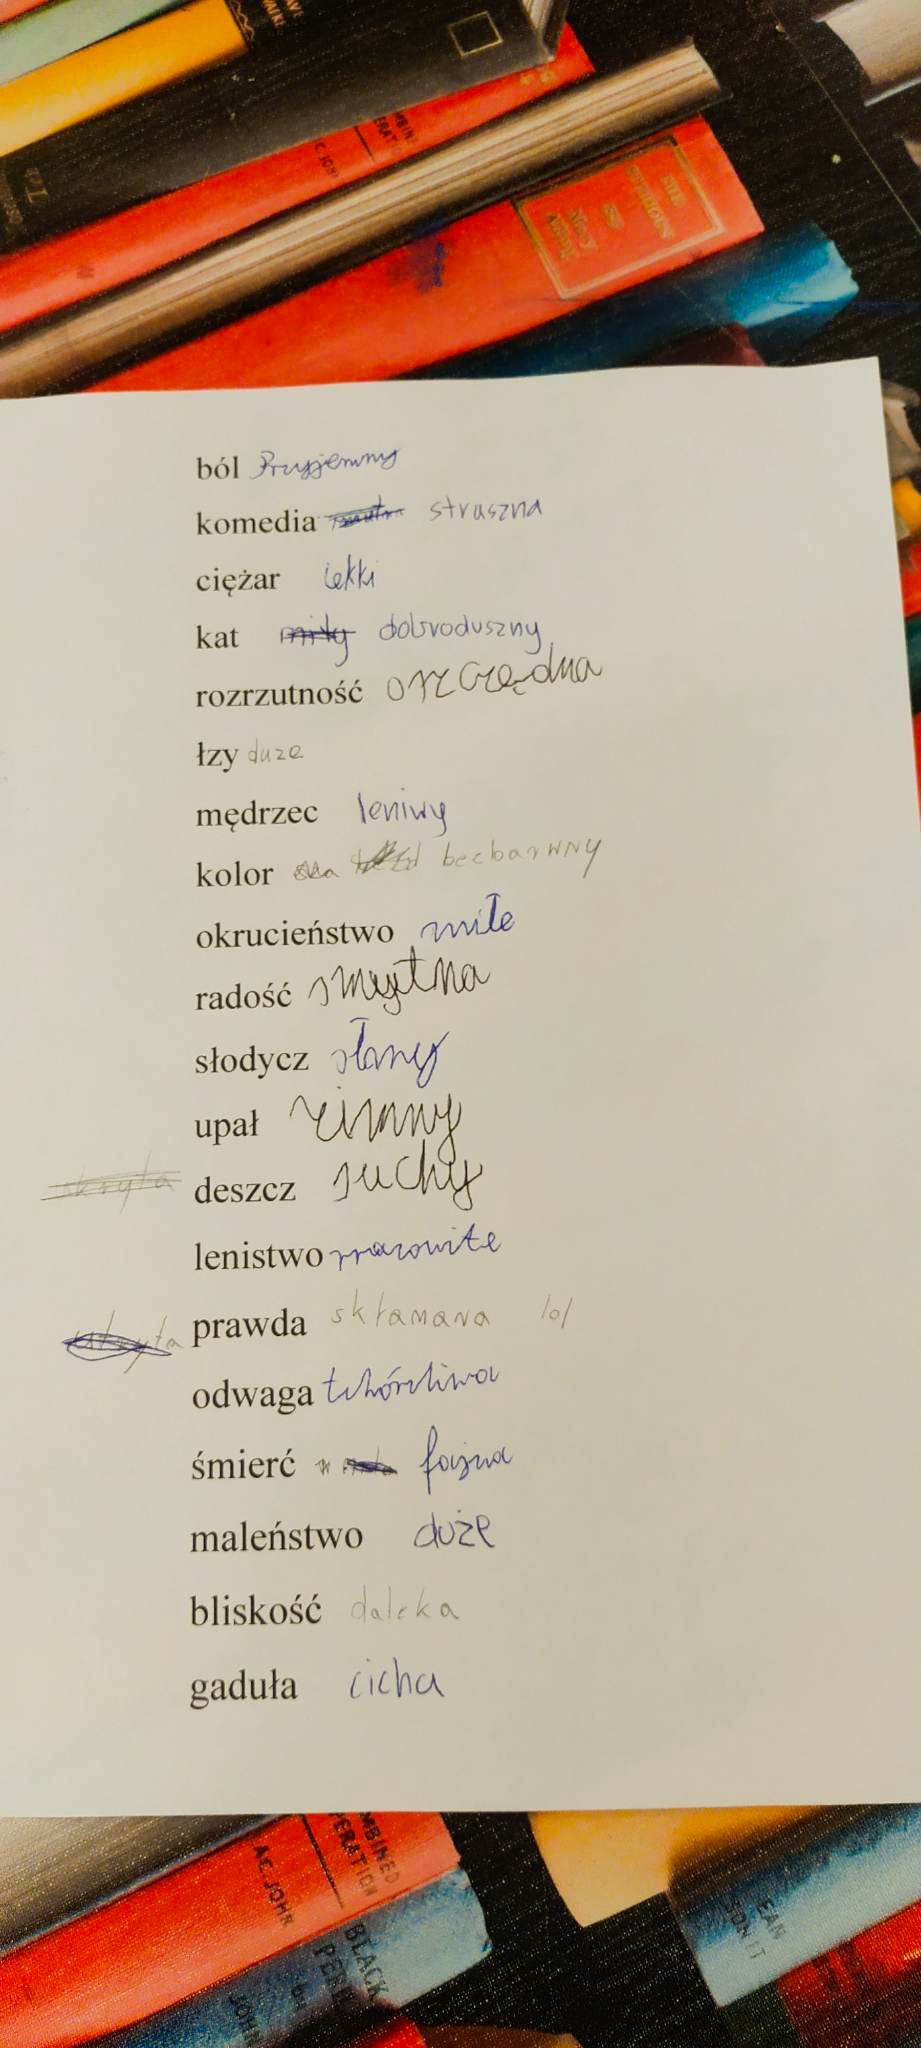 MBINED
ERATION
C. JOHN
ból Przyjemny
komedia straszna
ciężar lekki
kat miły dobroduszny
rozrzutność oszczędna
łzy duże
mędrzec leniwy
kolor bezbarwny
okrucieństwo miłe
radość smętna
słodycz słony
upał zimny
ukryta deszcz suchy
lenistwo pracowite
ukryta prawda skłamana lol
odwaga tchórzliwa
śmierć fajna
maleństwo duże
bliskość daleka
gaduła cicha
MBINED
PERATION
A.C. JOHN
BLACK
PER
by
JOHN
EAN